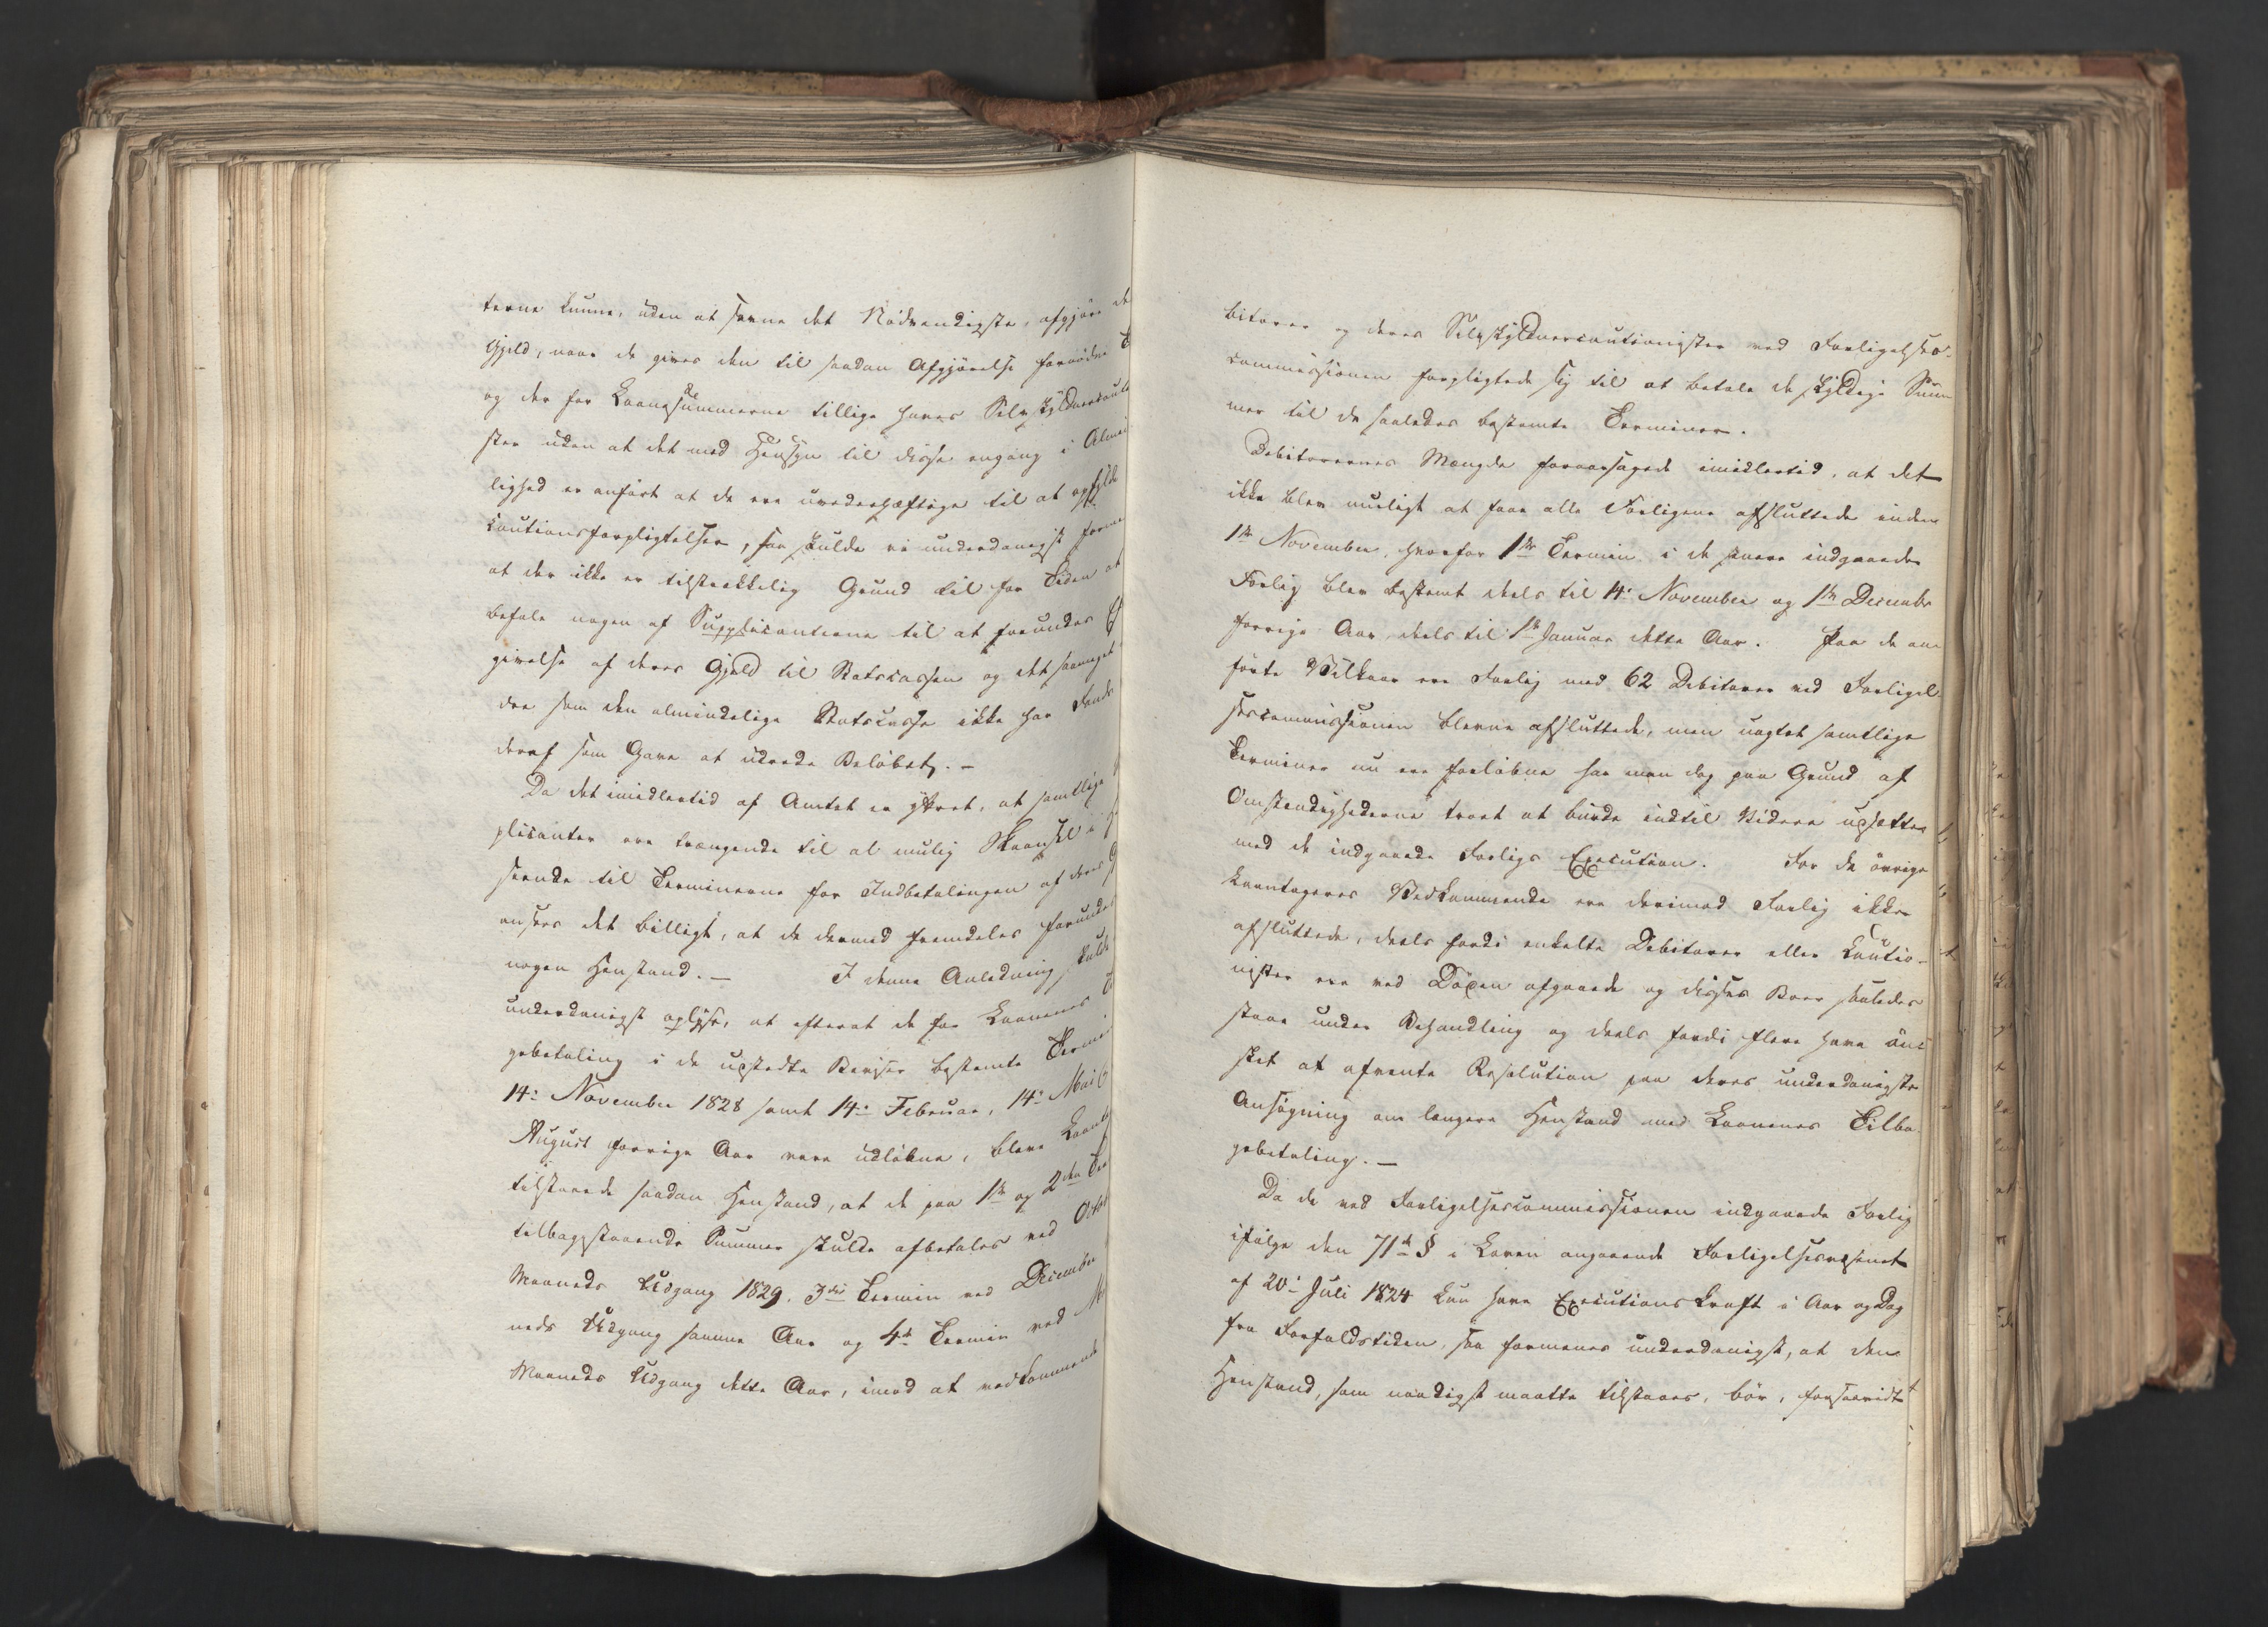 terne kunne, uden at savne det Nödvendigste, afgjöre de
Gjeld, naar de gives den til saadan Afgjörelse fornödne T
og der for Laanesummerne tillige haves Selvskyldnercauti
ster uden at det med Hensyn til disse engang i Almi
lighed er anført at de ere uvederhæftige til at opfylde
Cautionsforpligtelser, saa skulde vi underdanigst forme
at der ikke er tilstrækkelig Grund til for Tiden at
befale nogen af Supplicanterne til at forundes Ef
givelse af deres Gjeld til Statscassen og det saameget
dre som den almindelige Statscasse ikke har Fonds
deraf som Gave at udrede Beløbet. -
Da det imidlertid af Amtet er yttret, at samtlige
plicanter ere trængende til al mulig Skaansel i H
seende til Terminerne for Indbetalingen af deres G
ansees det billigt, at de dermed fremdeles forundes
nogen Henstand. - I denne Anledning skulde
underdanigst oplyse, at efterat de for Laanenes T
gebetaling i de udstedte Beviser bestemte Termi
14: November 1828 samt 14: Februar, 14: Mai
August forrige Aar vare udløbne, bleve Laant
tilstaaede saadan Henstand, at de paa 1ste og 2den Ter
tilbagestaaende Summer skulde afbetales ved Octob
Maaneds Udgang 1829. 3die Termin ved December
neds Udgang samme Aar og 4de Termin ved M
Maaneds Udgang dette Aar, imod at vedkommende
bitorer og deres Selvskyldnercautionister ved Forligelses-
commissionen forpligtede sig til at betale de skyldige Sum
mer til de saaledes bestemte Terminer.
Debitorernes Mængde foraarsagede imidlertid, at det
ikke blev muligt at faae alle Forligene afsluttede inden
1ste November, hvorfor 1ste Termin i de senere indgaaede
Forlig blev bestemt deels til 14: November og 1ste Decembr
forrige Aar, deels til 1ste Januar dette Aar. Paa de an
förte Vilkaar ere Forlig med 62 Debitorer ved Forligel
sescommissionen blevne afsluttede, men uagtet samtlige
Terminer nu ere forløbne har man dog paa Grund af
Omstændighederne troet at burde indtil Videre udsætte
med de indgaaede Forligs Execution. For de övrige
Laantageres Vedkommende ere derimod Forlig ikke
afsluttede, deels fordi enkelte Debitorer eller Cautio-
nister ere ved Döden afgaaede og disses Boer saaledes
staae under Behandling og deels fordi flere have öns
ket at afvente Resolution paa deres underdanigste
Ansögning om længere Henstand med Laanenes Tilba
gebetaling. -
Da de ved Forligelsescommissionen indgaaede Forlig
ifölge den 71de § i Loven angaaende Forligelsesvæsenet
af 20: Juli 1824 kun have Executionskraft i Aar og Dag
fra Forfaldstiden, saa formenes underdanigst, at den
Henstand, som naadigst maatte tilstaaes, bör, forsaavidt